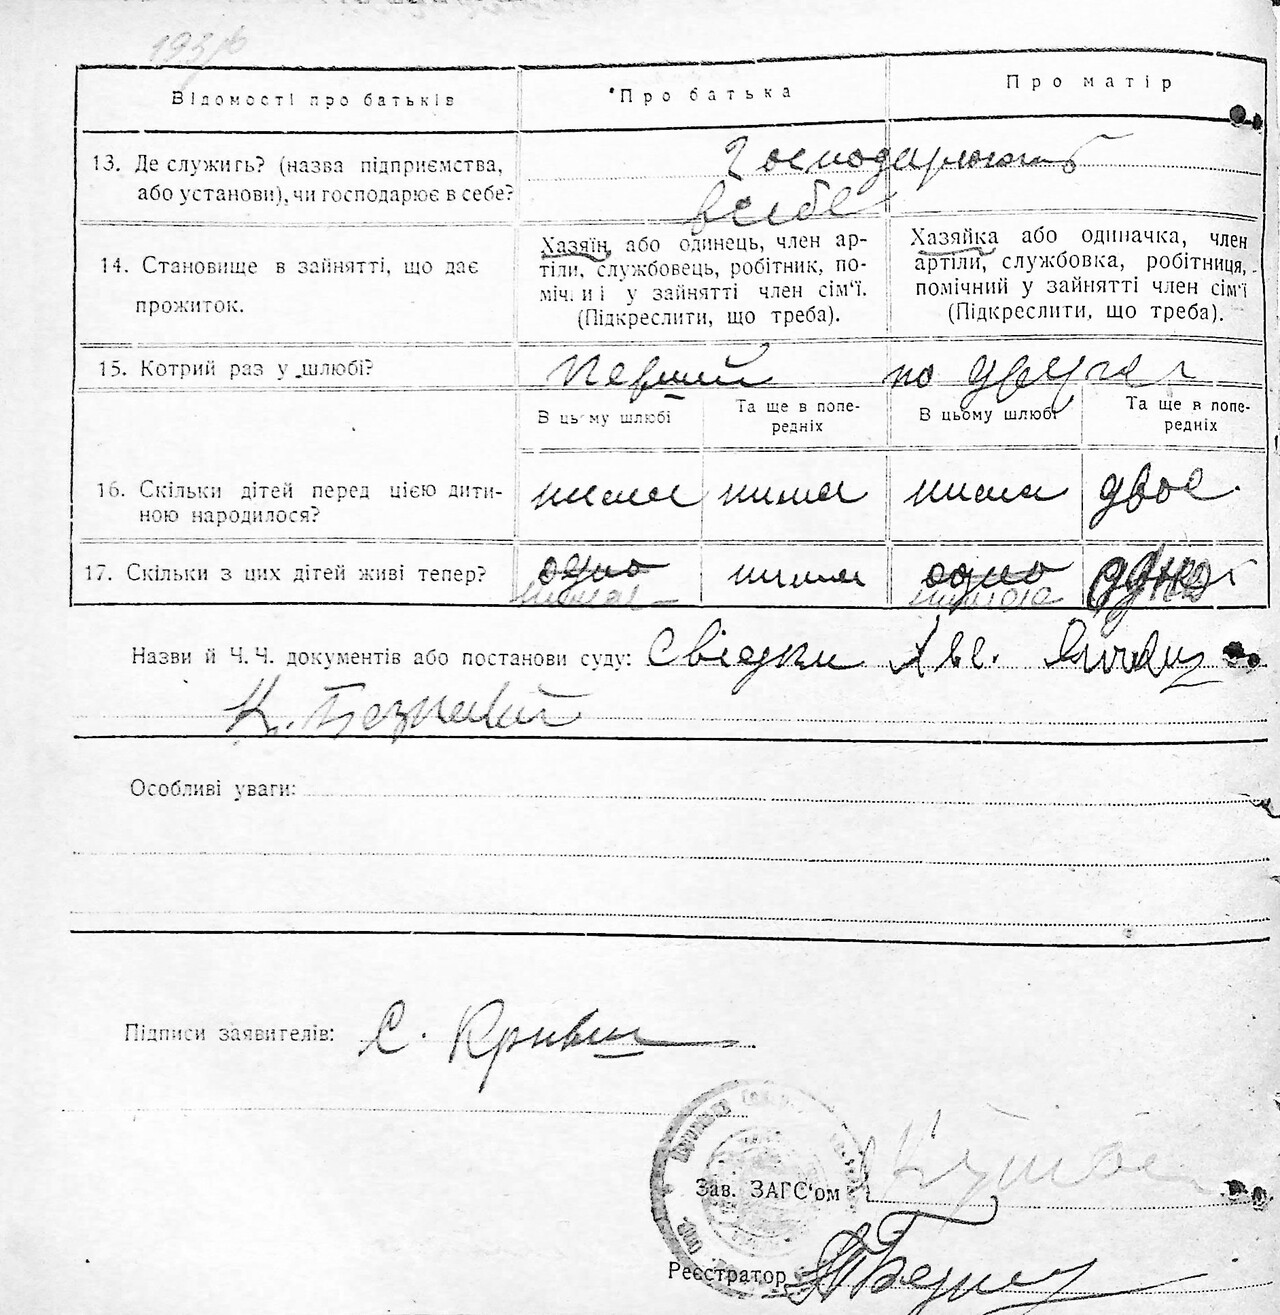 Відомості про батьків
Про батька
Про матір
13. Де служить? (назва підприємства,
або установи), чи господарює в себе?
Господарюють
в себе
14. Становище в зайнятті, що дає
прожиток.
Хазяїн, або одинець, член ар-
тіли, службовець, робітник, по-
міч. и і у зайнятті член сім'ї.
(Підкреслити, що треба).
Хазяйка або одиначка, член
артіли, службовка, робітниця,
помічний у зайнятті член сім'ї
(Підкреслити, що треба).
15. Котрий раз у шлюбі?
Перший
по друга
В цьму шлюбі
Та ще в попе-
редніх
В цьому шлюбі
Та ще в попе-
редніх
16. Скільки дітей перед цією дити-
ною народилося?
нима нима нима двое
17. Скільки з цих дітей живі тепер?
одно нима одно
нима нимога
Назви й Ч. Ч. документів або постанови суду: Свідки
К.
Особливі уваги:
Підписи заявителів: С. Крив
Зав. ЗАГС'ом
Реєстратор